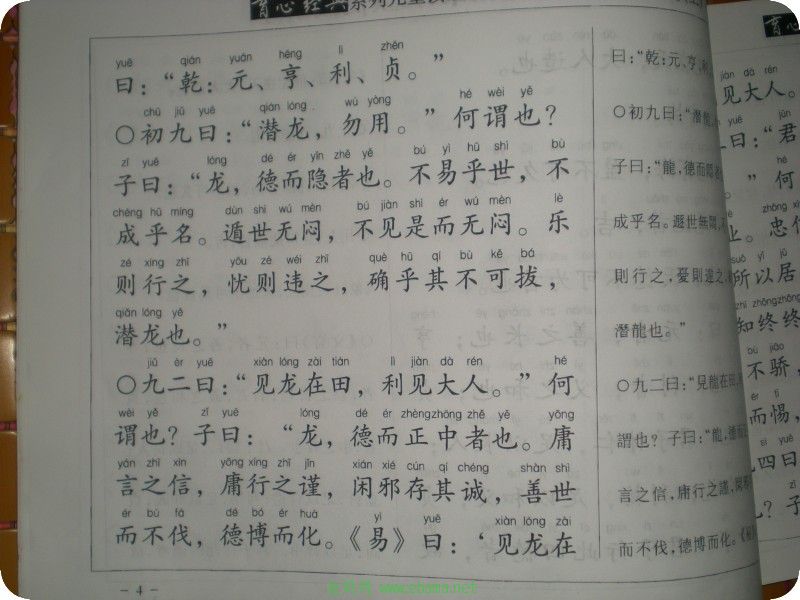 育心经典系列儿童读
yuē qián yuán hēng lì zhēn
曰：“乾：元、亨、利、贞。”
chū jiǔ yuē qián lóng wù yòng hé wèi yě
○初九曰：“潜龙，勿用。”何谓也？
zǐ yuē lóng dé ér yǐn zhě yě bù yì hū shì bù
子曰：“龙，德而隐者也。不易乎世，不
chéng hū míng dùn shì wú mèn bú jiàn shì ér wú mèn lè
成乎名。遁世无闷，不见是而无闷。乐
zé xíng zhī yōu zé wéi zhī què hū qí bù kě bá
则行之，忧则违之，确乎其不可拔，
qián lóng yě
潜龙也。”
jiǔ èr yuē xiàn lóng zài tián lì jiàn dà rén hé
○九二曰：“见龙在田，利见大人。”何
wèi yě zǐ yuē lóng dé ér zhèng zhōng zhě yě yōng
谓也？子曰：“龙，德而正中者也。庸
yán zhī xìn yōng xíng zhī jǐn xián xié cún qí chéng shàn shì
言之信，庸行之谨，闲邪存其诚，善世
ér bù fá dé bó ér huà yì yuē xiàn lóng zài
而不伐，德博而化。《易》曰：‘见龙在
- 4 -
曰：“乾：元、亨、利
○初九曰：“潛龍
子曰：“龍，德而隱者
成乎名。遯世無悶，不
則行之，憂則違之，
潛龍也。”
○九二曰：“見龍在田
謂也？子曰：“龍，德而
言之信，庸行之謹，閑邪
而不伐，德博而化。《易
育心
jiàn dà rén
见大人。
jūn
曰：“君
” 何
zhōng xìn
业。忠信
suǒ yǐ jū
所以居
zhī zhōng zhōng
知终终
bù jiāo
不骄，
ér tì
而惕，
sì yuē
九四曰
zǐ
？子
www.ebama.net